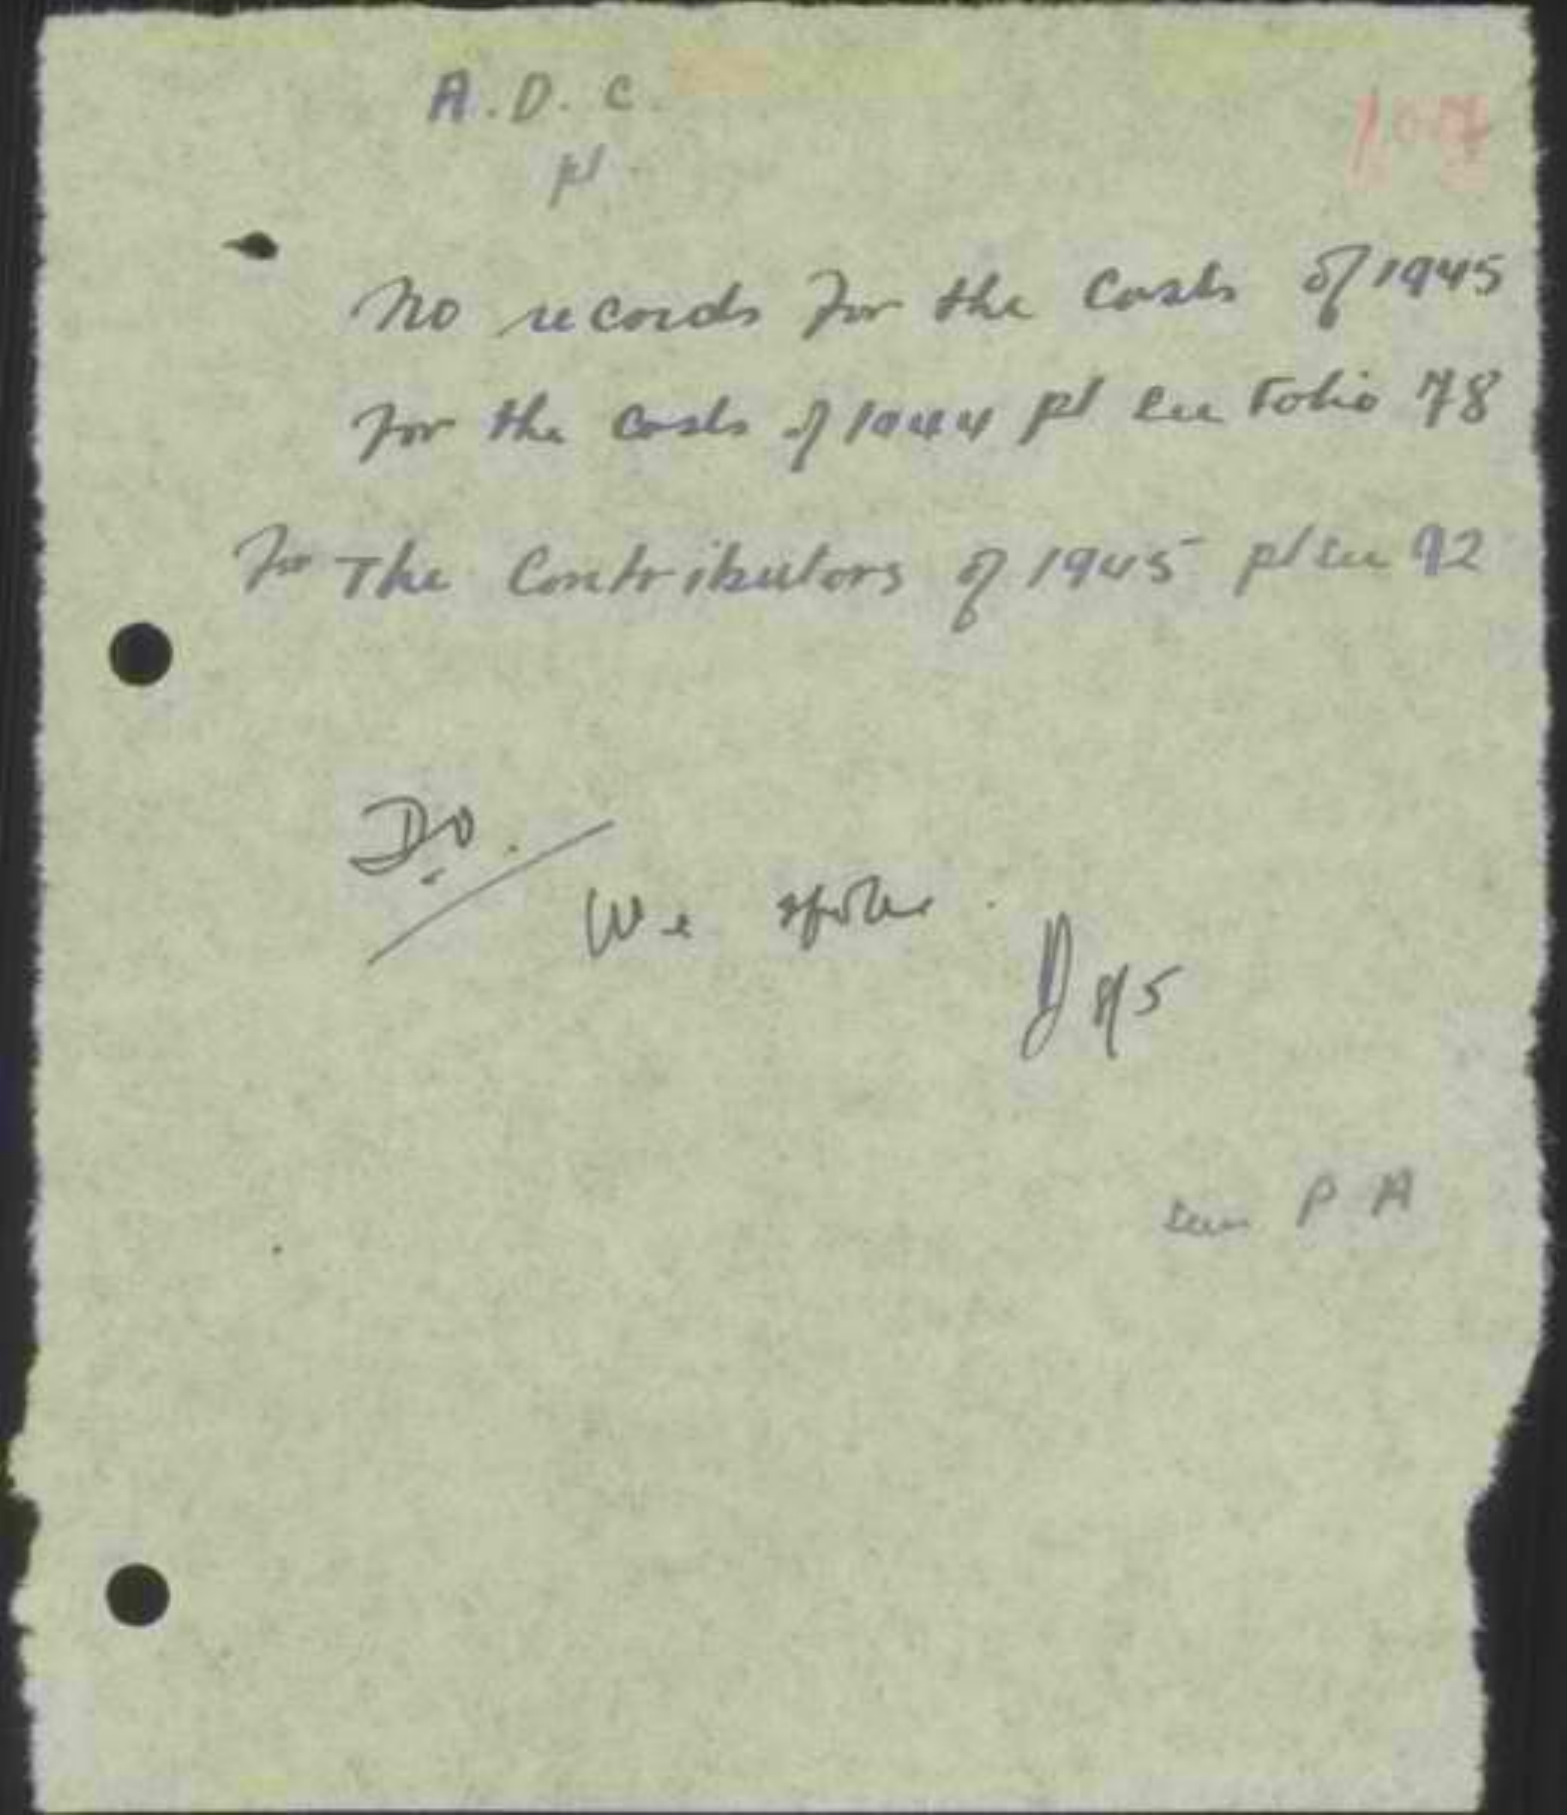 A.D.C.
pl.
No records for the costs of 1945
for the costs of 1944 pl see Folio 78
for The Contributors of 1945 pl see 92
D.O.
We spoke.
8/5
seen P A